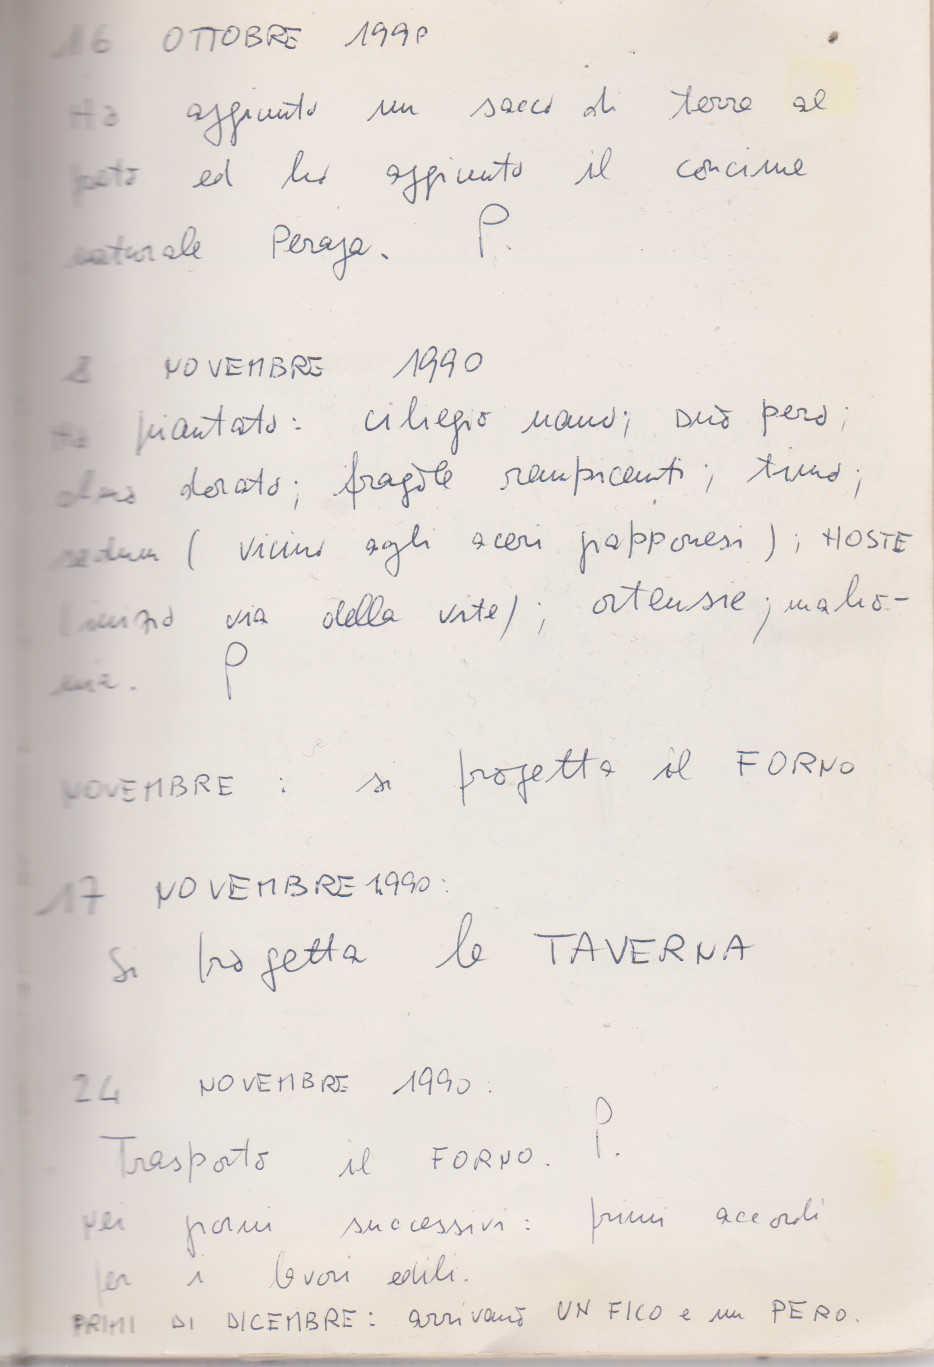 16 OTTOBRE 1990
Ho aggiunto un sacco di terra al
prato ed ho aggiunto il concime
naturale Peraja. P.
8 NOVEMBRE 1990
Ho piantato: ciliegio nano; pero;
olmo dorato; fragole rampicanti; timo;
sedum (vicino agli aceri giapponesi); HOSTE
(inizio via della vite); ortensie; maho-
nia. P
NOVEMBRE: si progetta il FORNO
17 NOVEMBRE 1990:
Si progetta la TAVERNA
24 NOVEMBRE 1990:
Trasporto il FORNO. P.
Nei giorni successivi: primi accordi
per i lavori edili.
PRIMI DI DICEMBRE: arrivano UN FICO e un PERO.